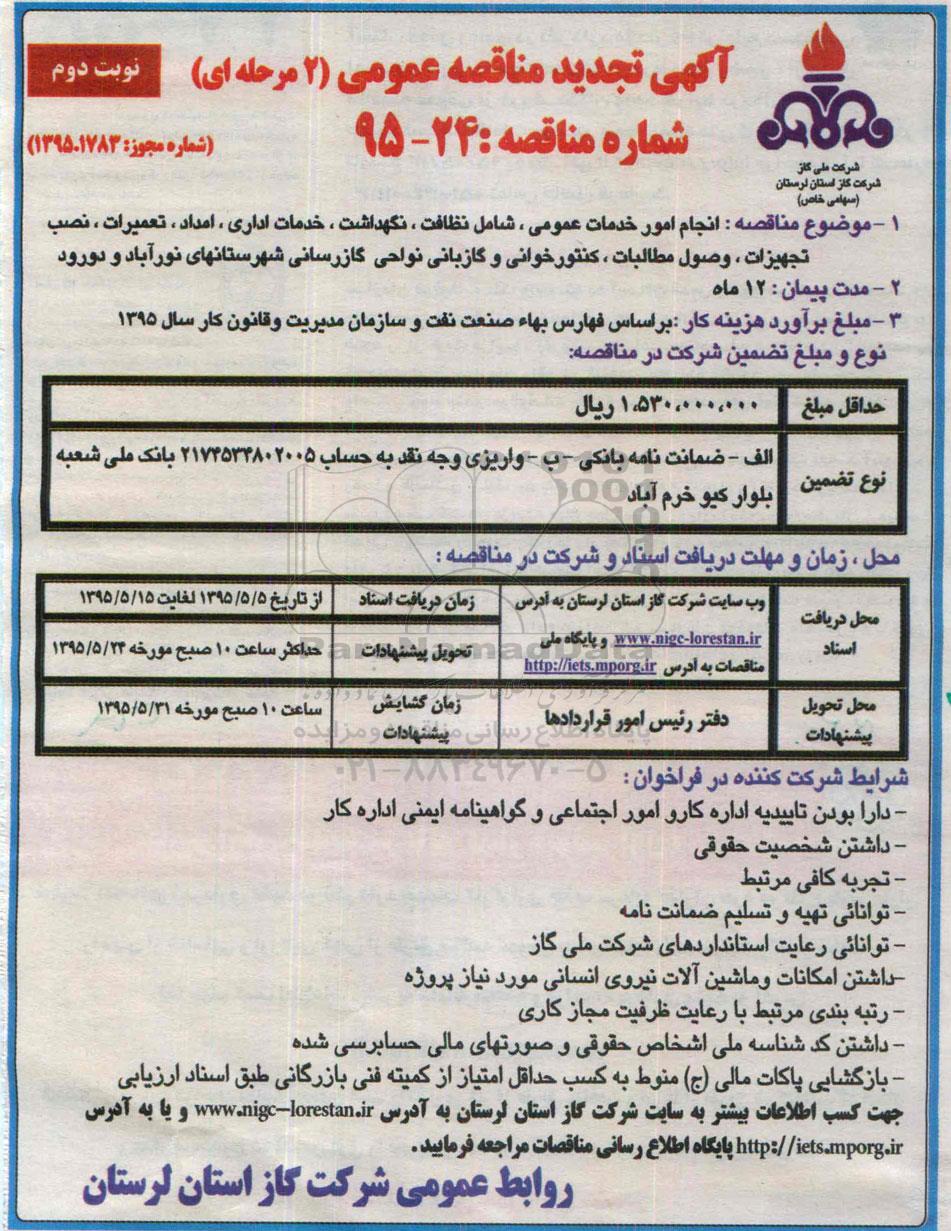 آگهی تجدید مناقصه عمومی (۲ مرحله ای)
نوبت دوم
شماره مناقصه :۲۴- ۹۵
(شماره مجوز: ۱۳۹۵.۱۷۸۳)
شرکت ملی گاز
شرکت گاز استان لرستان
(سهامی خاص)
۱ -موضوع مناقصه : انجام امور خدمات عمومی ، شامل نظافت ، نگهداشت ، خدمات اداری ، امداد ، تعمیرات ، نصب
تجهیزات ، وصول مطالبات ، کنتورخوانی و گازبانی نواحی گازرسانی شهرستانهای نورآباد و دورود
۲ - مدت پیمان : ۱۲ ماه
۳ -مبلغ برآورد هزینه کار :براساس فهارس بهاء صنعت نفت و سازمان مدیریت وقانون کار سال ۱۳۹۵
نوع و مبلغ تضمین شرکت در مناقصه:
حداقل مبلغ
۱،۵۳۰،۰۰۰،۰۰۰ ریال
نوع تضمین
الف - ضمانت نامه بانکی - ب - واریزی وجه نقد به حساب ۲۱۷۴۵۳۴۸۰۲۰۰۵ بانک ملی شعبه
بلوار کیو خرم آباد
محل ، زمان و مهلت دریافت اسناد و شرکت در مناقصه :
محل دریافت
اسناد
وب سایت شرکت گاز استان لرستان به آدرس
www.nigc-lorestan.ir و پایگاه ملی
مناقصات به آدرس http://iets.mporg.ir
زمان دریافت اسناد
از تاریخ ۱۳۹۵/۵/۵ لغایت ۱۳۹۵/۵/۱۵
تحویل پیشنهادات
حداکثر ساعت ۱۰ صبح مورخه ۱۳۹۵/۵/۲۴
محل تحویل
پیشنهادات
دفتر رئیس امور قراردادها
زمان گشایش
پیشنهادات
ساعت ۱۰ صبح مورخه ۱۳۹۵/۵/۳۱
ParsNamadData
پایگاه اطلاع رسانی مناقصه و مزایده
۰۲۱-۸۸۳۴۹۶۷۰-۵
شرایط شرکت کننده در فراخوان :
- دارا بودن تاییدیه اداره کارو امور اجتماعی و گواهینامه ایمنی اداره کار
- داشتن شخصیت حقوقی
- تجربه کافی مرتبط
- توانائی تهیه و تسلیم ضمانت نامه
- توانائی رعایت استانداردهای شرکت ملی گاز
-داشتن امکانات وماشین آلات نیروی انسانی مورد نیاز پروژه
- رتبه بندی مرتبط با رعایت ظرفیت مجاز کاری
- داشتن کد شناسه ملی اشخاص حقوقی و صورتهای مالی حسابرسی شده
- بازگشایی پاکات مالی (ج) منوط به کسب حداقل امتیاز از کمیته فنی بازرگانی طبق اسناد ارزیابی
جهت کسب اطلاعات بیشتر به سایت شرکت گاز استان لرستان به آدرس www.nigc-lorestan.ir و یا به آدرس
http://iets.mporg.ir پایگاه اطلاع رسانی مناقصات مراجعه فرمایید.
روابط عمومی شرکت گاز استان لرستان